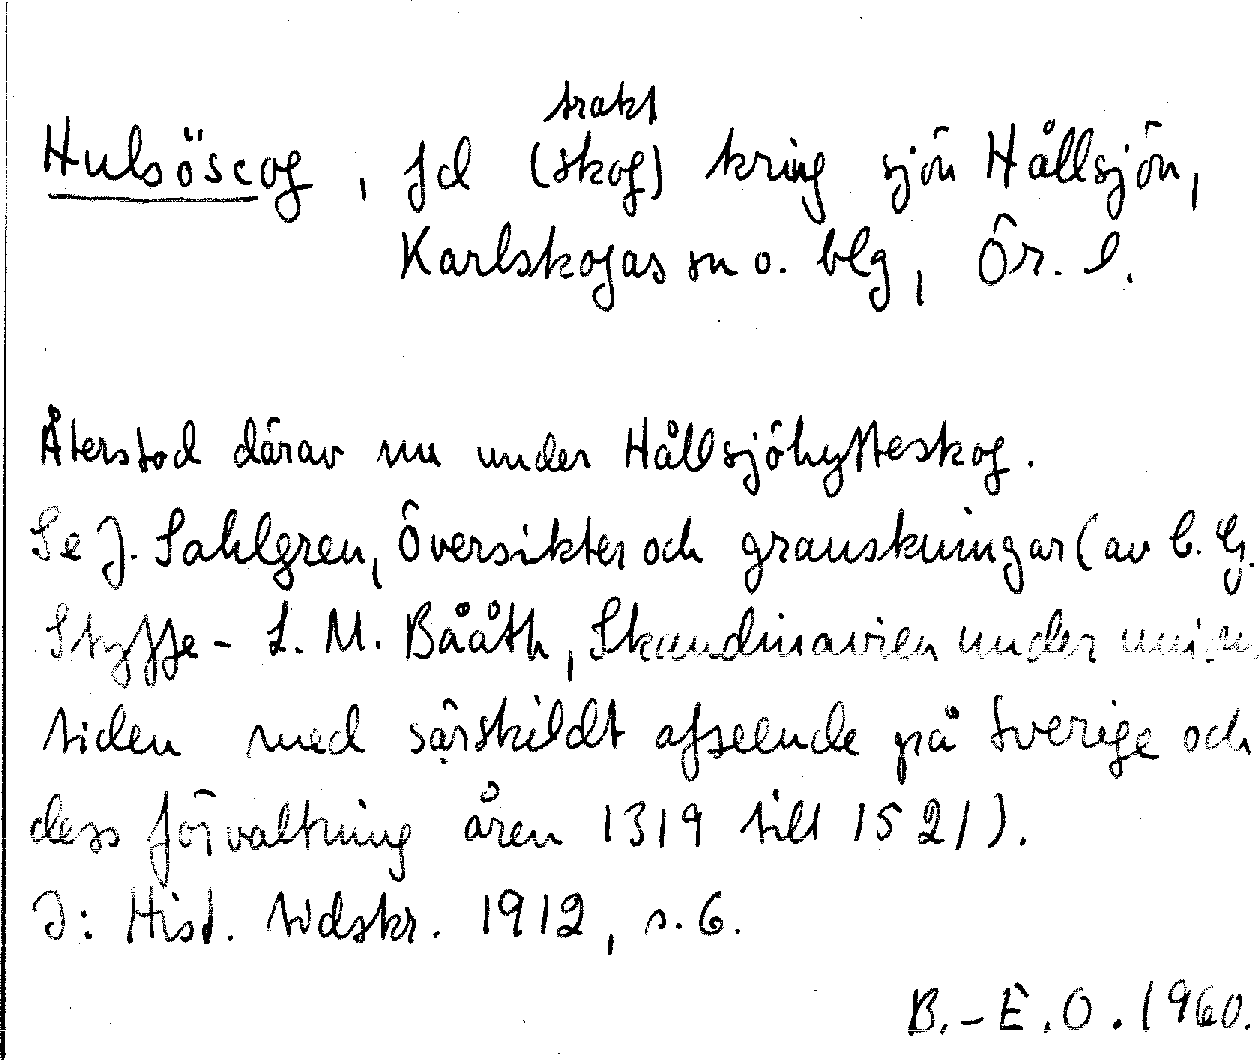 trakt
Hulsöscog, fd (skog) kring sjön Hållsjön,
Karlskogas sn o. blg, Ör. l.
Återstod därav nu under Hållsjöhytteskog.
Se J. Sahlgren, Översikter och granskningar (av C. G.
Styffe - L. M. Bååth, Skandinavien under unions
tiden med särskildt afseende på Sverige och
dess förvaltning åren 1319 till 1521).
I: Hist. tidskr. 1912, s. 6.
B.-E.O. 1960.